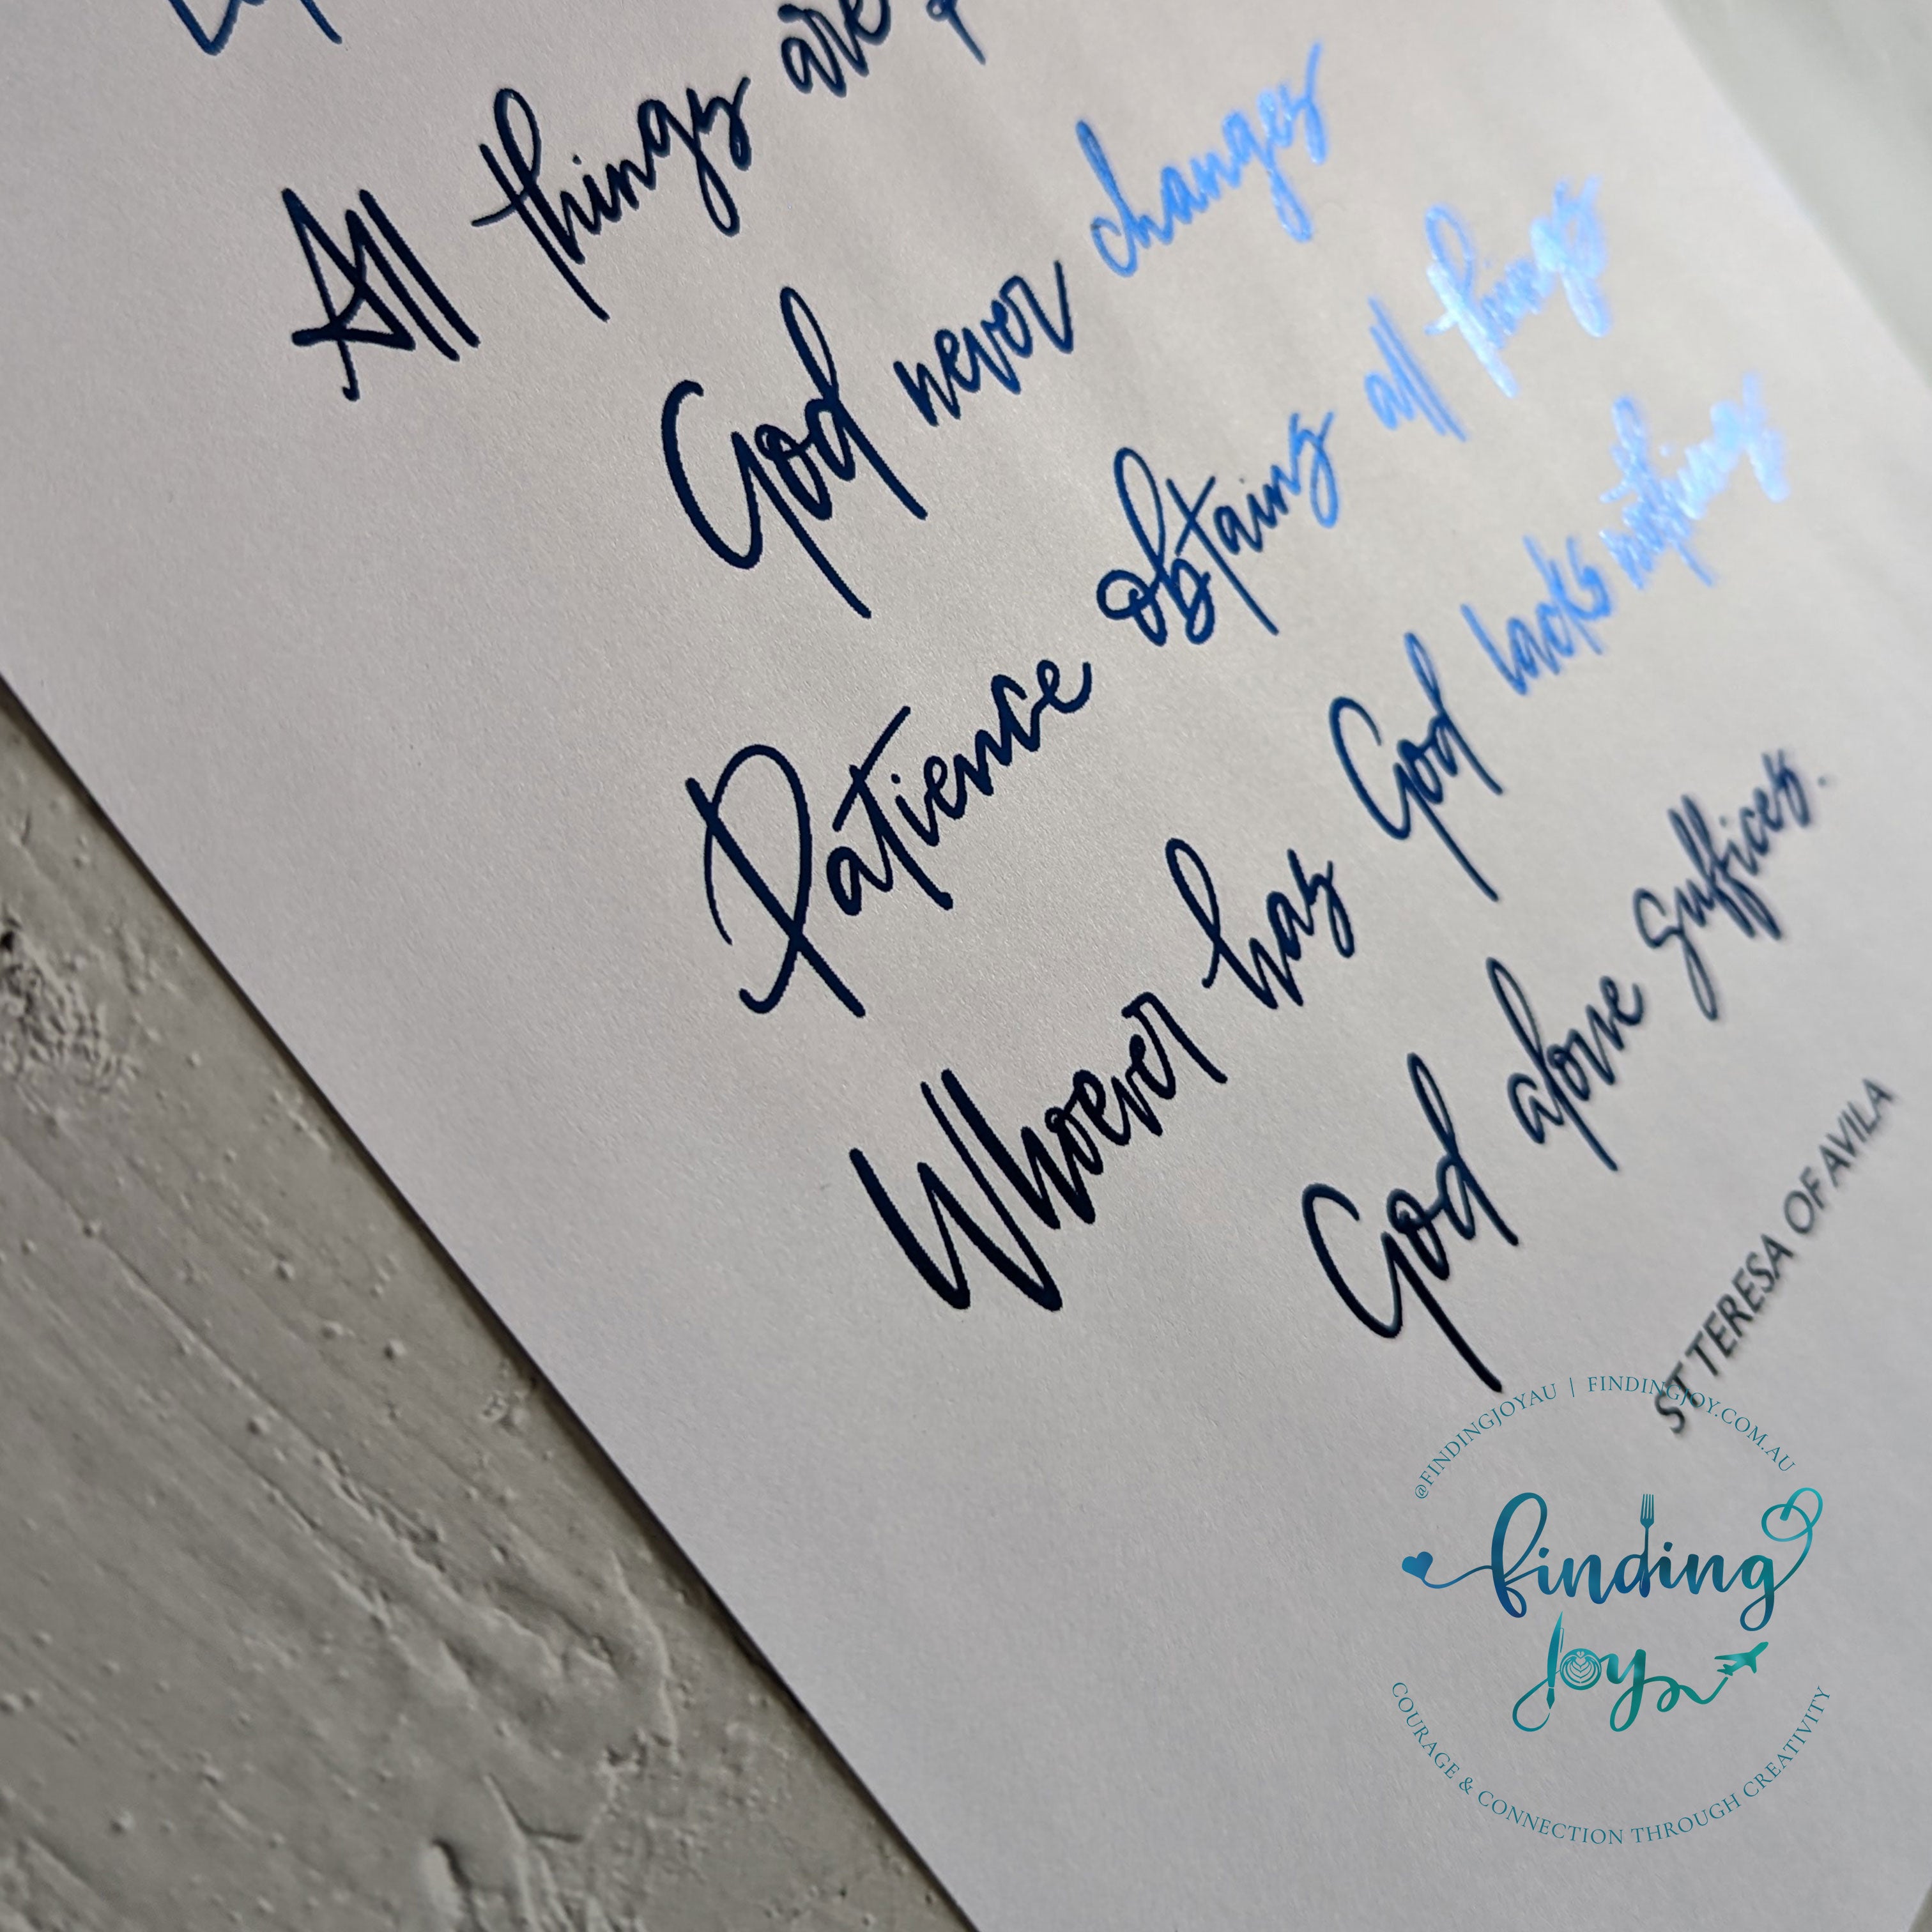 All things are
God never changes
Patience obtains all things
Whoever has God lacks nothing
God alone suffices.
ST TERESA OF AVILA
@FINDINGJOYAU | FINDINGJOY.COM.AU
finding
joy
COURAGE & CONNECTION THROUGH CREATIVITY